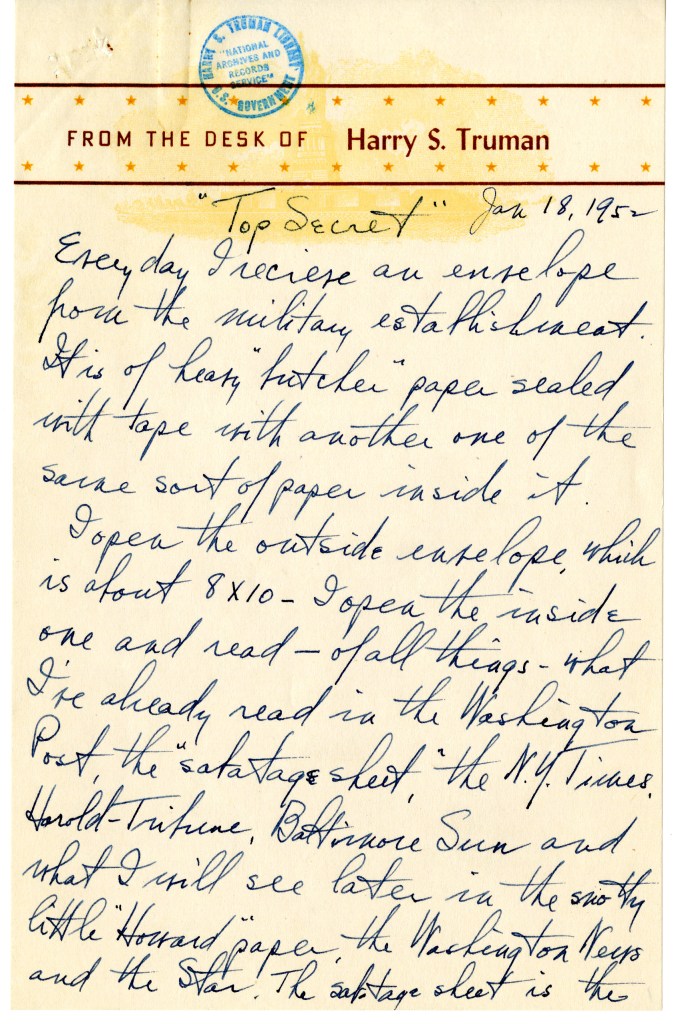 HARRY S. TRUMAN LIBRARY
"NATIONAL
ARCHIVES AND
RECORDS
SERVICE"
U.S. GOVERNMENT
FROM THE DESK OF Harry S. Truman
"Top Secret" Jan 18, 1952
Every day I recieve an envelope
from the military establishment.
It is of heavy "butcher" paper sealed
with tape with another one of the
same sort of paper inside it.
I open the outside envelope, which
is about 8X10 - I open the inside
one and read - of all things - what
I've already read in the Washington
Post, the "sabatage sheet," the N.Y. Times,
Harold-Tribune, Baltimore Sun and
what I will see later in the snotty
little "Howard" paper, the Washington News
and the Star. The sabatage sheet is the